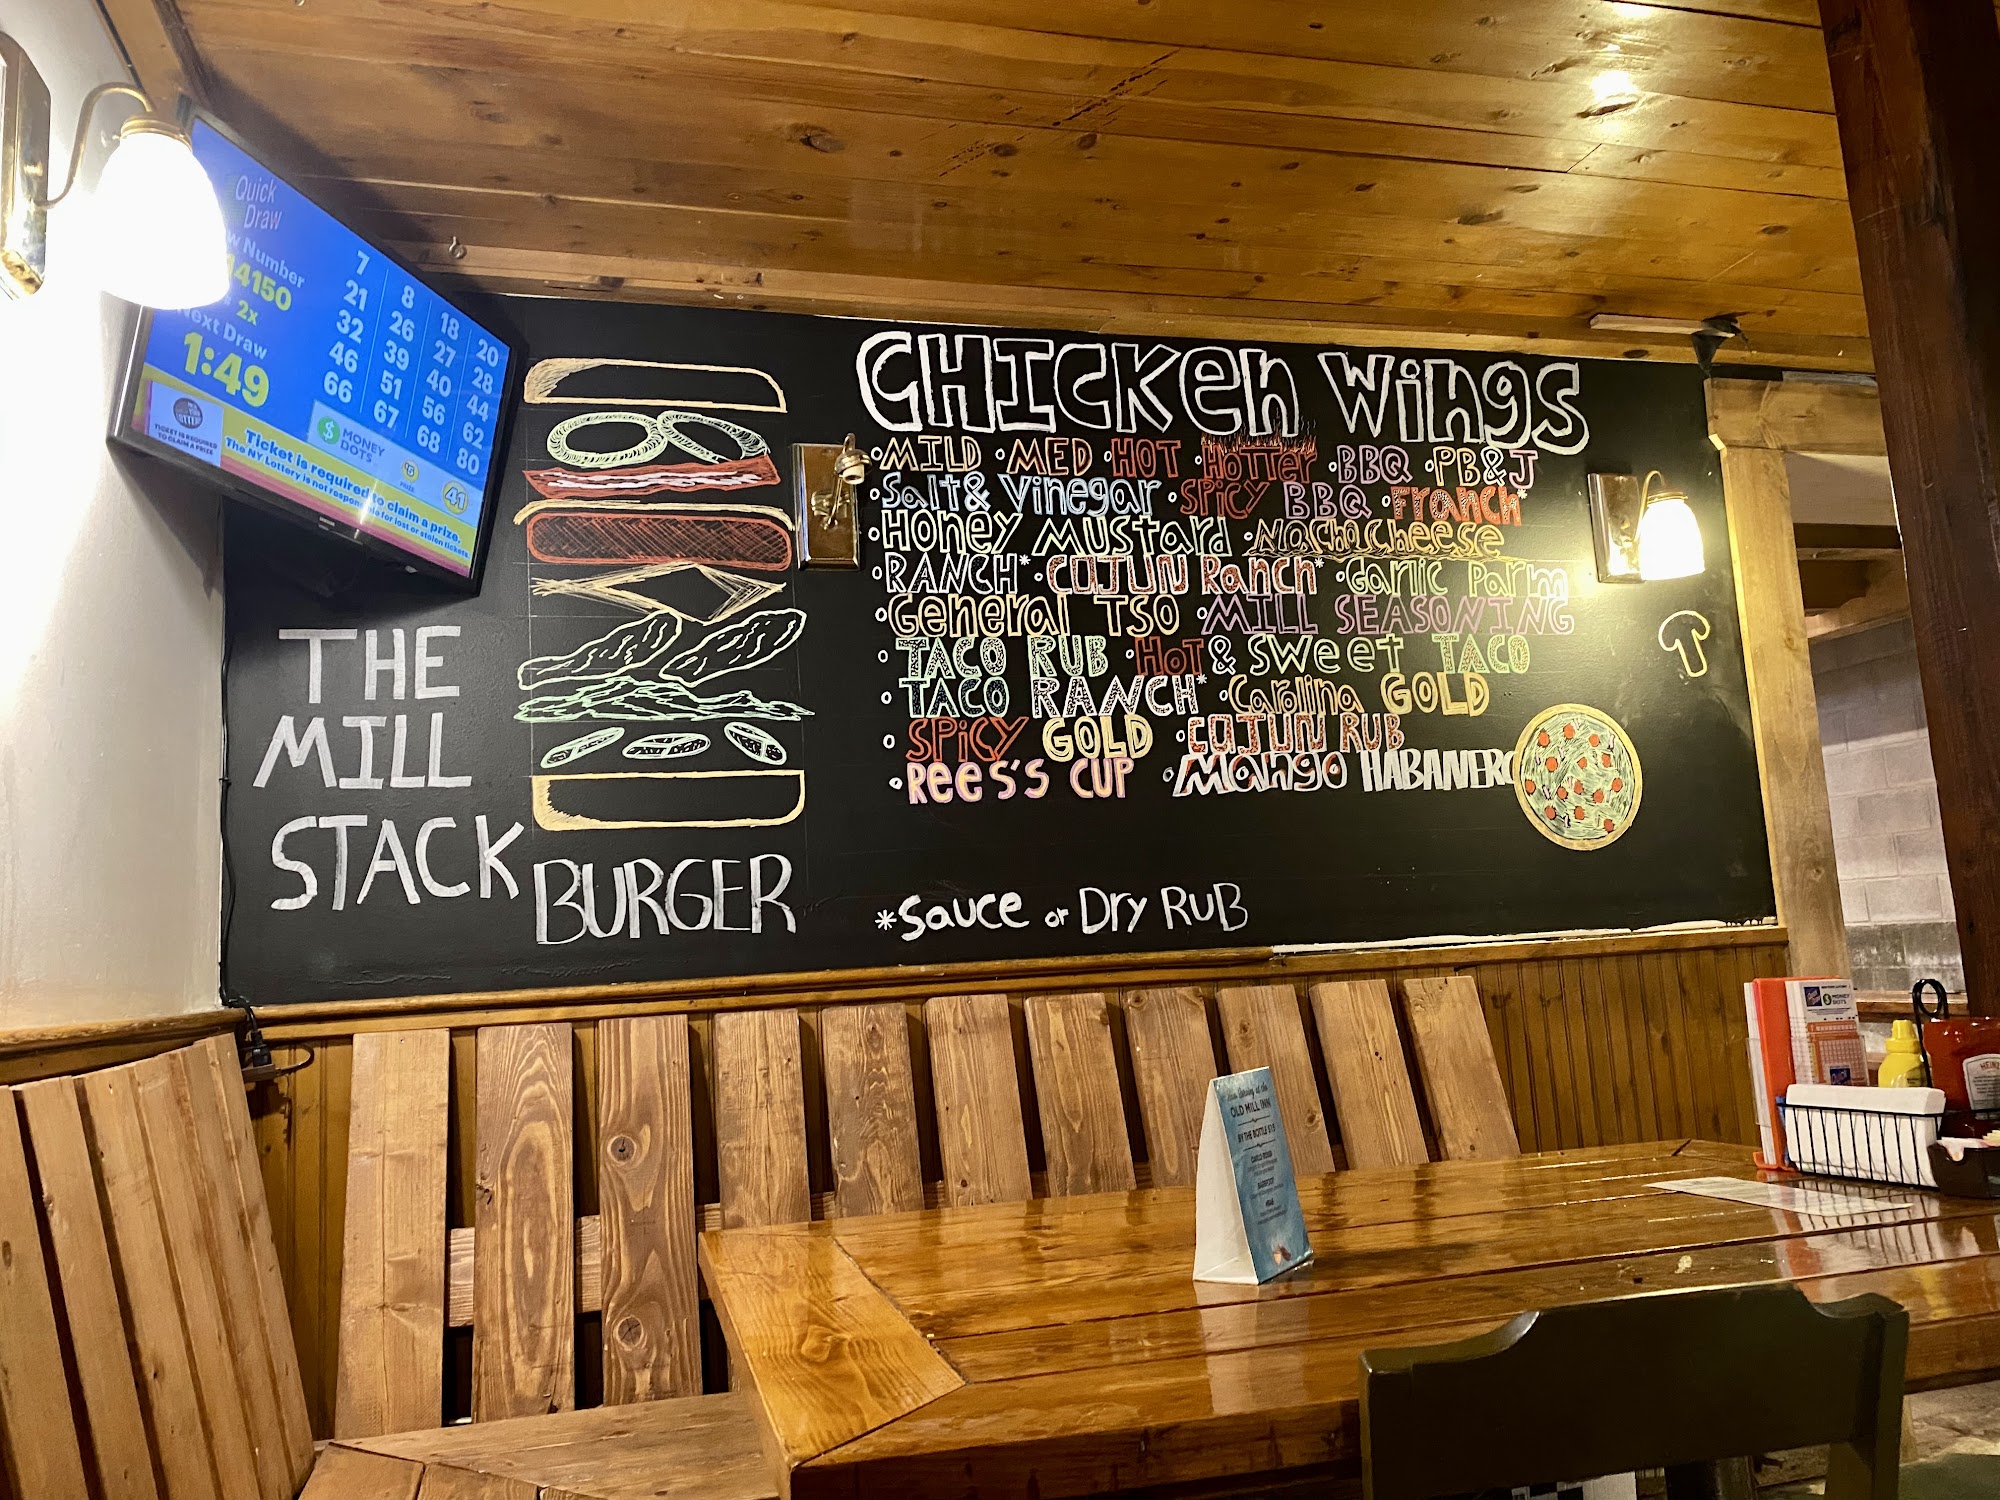 Quick
Draw
Number
14150
2x
Next Draw
1:49
7 8 18 20
21 26 27 28
32 39 40 44
46 51 56 62
66 67 68 80
MONEY
DOTS
41
TICKET IS REQUIRED
TO CLAIM A PRIZE
Ticket is required to claim a prize.
The NY Lottery is not responsible for lost or stolen tickets.
THE
MILL
STACK
BURGER
CHICKEN WINGS
•MILD •MED •HOT •HOTTER •BBQ •PB&J
•Salt & Vinegar •SPICY BBQ •FRANCH*
•Honey Mustard •Nacho Cheese
•RANCH* •CAJUN Ranch* •Garlic Parm
•General TSO •MILL SEASONING
•TACO RUB •HOT & SWEET TACO
•TACO RANCH* •Carolina GOLD
•SPICY GOLD •CAJUN RUB
•REES'S CUP •Mango HABANERO
*Sauce or Dry RUB
OLD MILL INN
BY THE BOTTLE $15
MONEY
DOTS
HEINZ